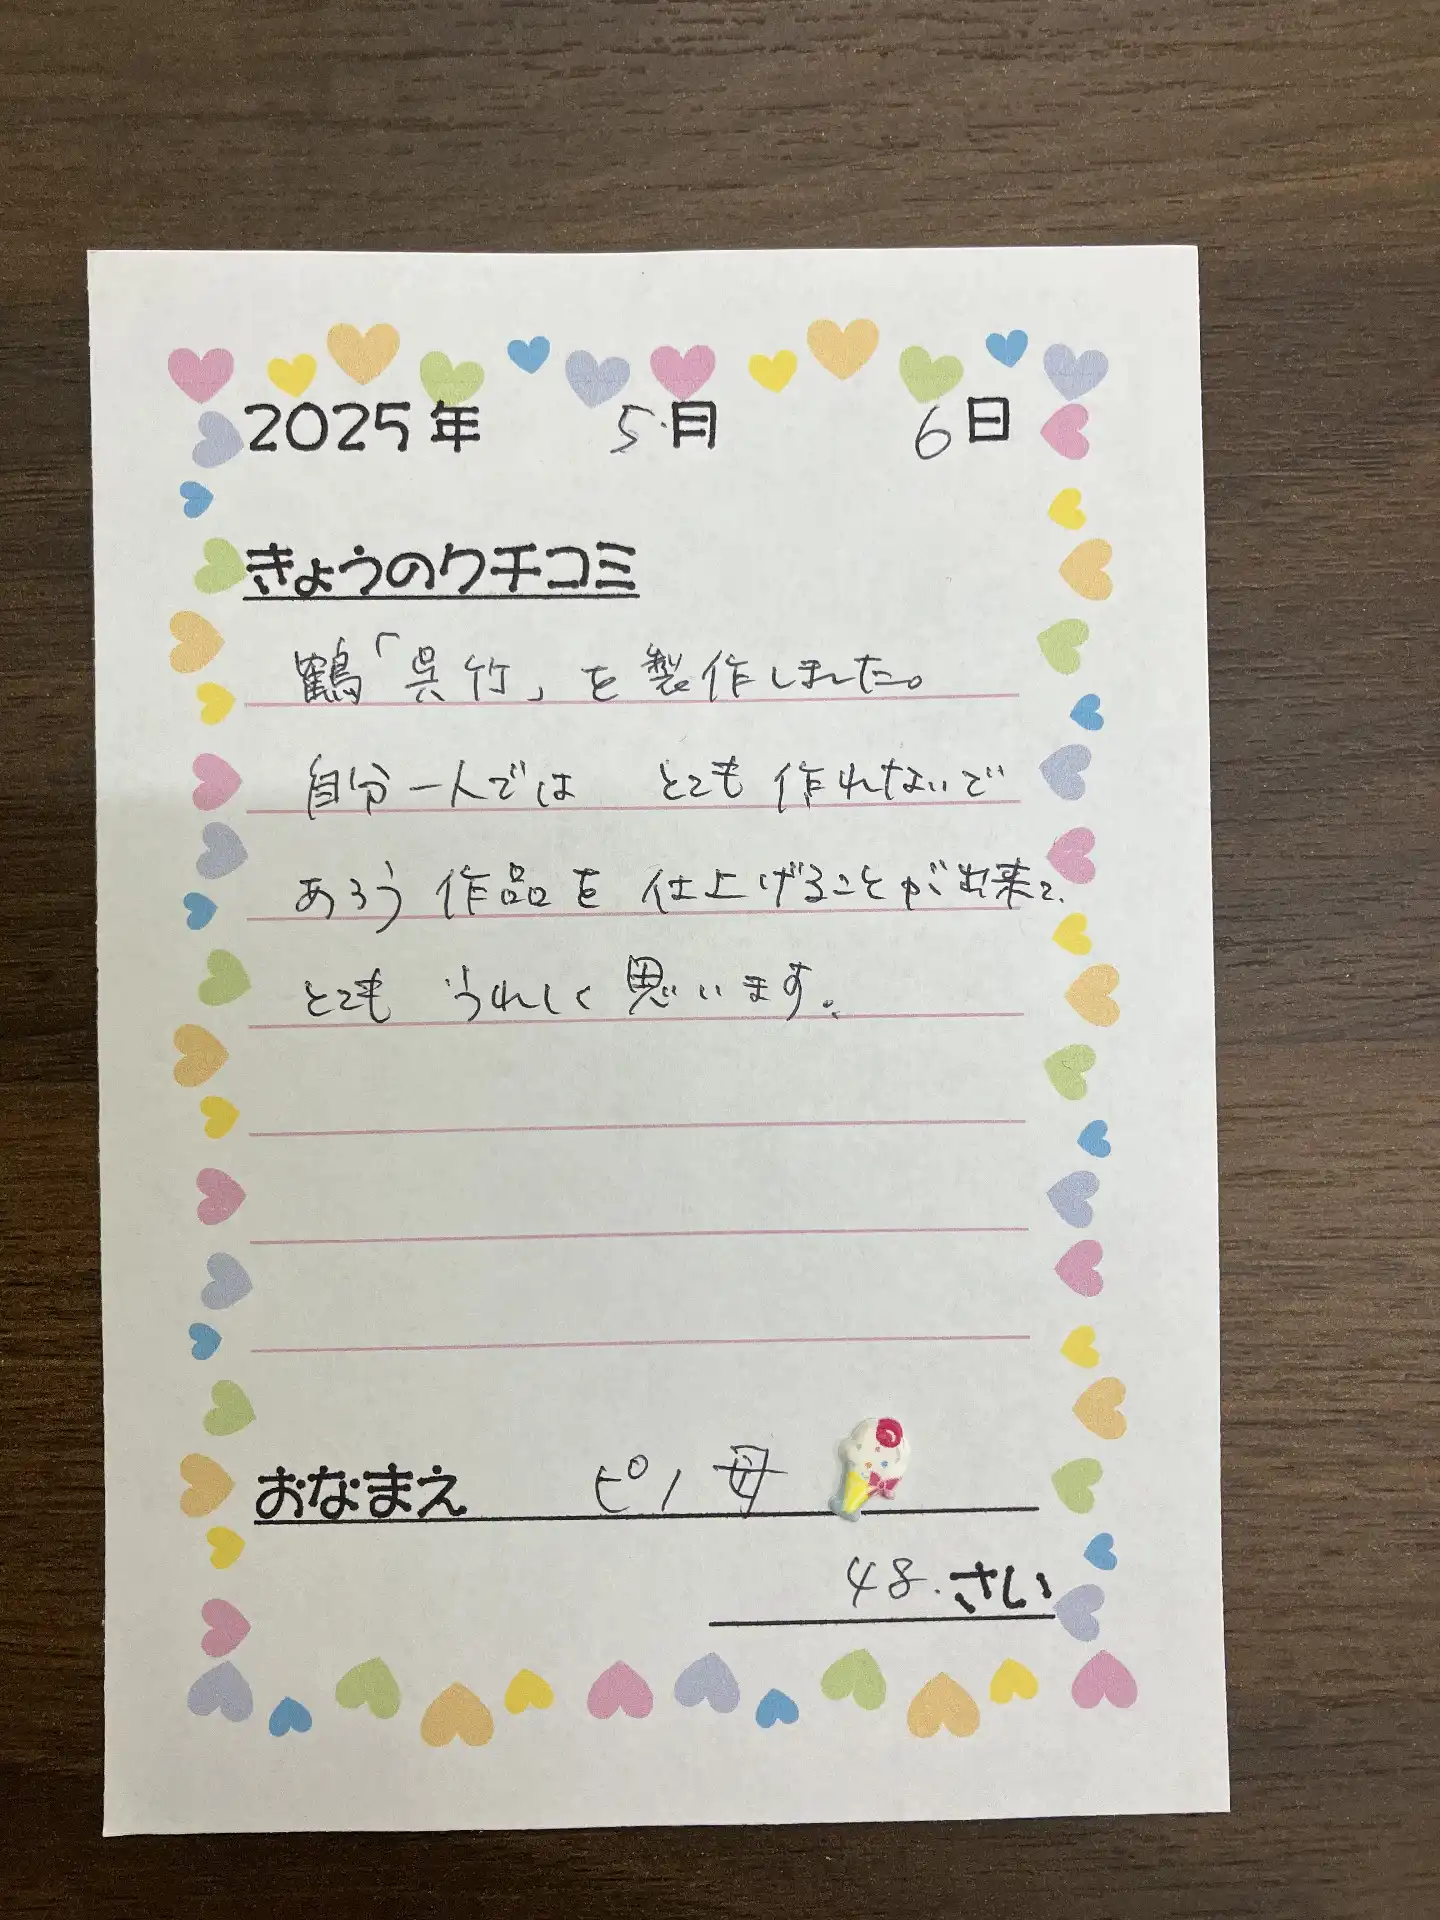 2025年 5月 6日
きょうのクチコミ
鶴「呉竹」を製作しました。
自分一人では とても作れないで
あろう作品を仕上げることが出来て、
とても うれしく思います。
おなまえ ピノ母
48.さい